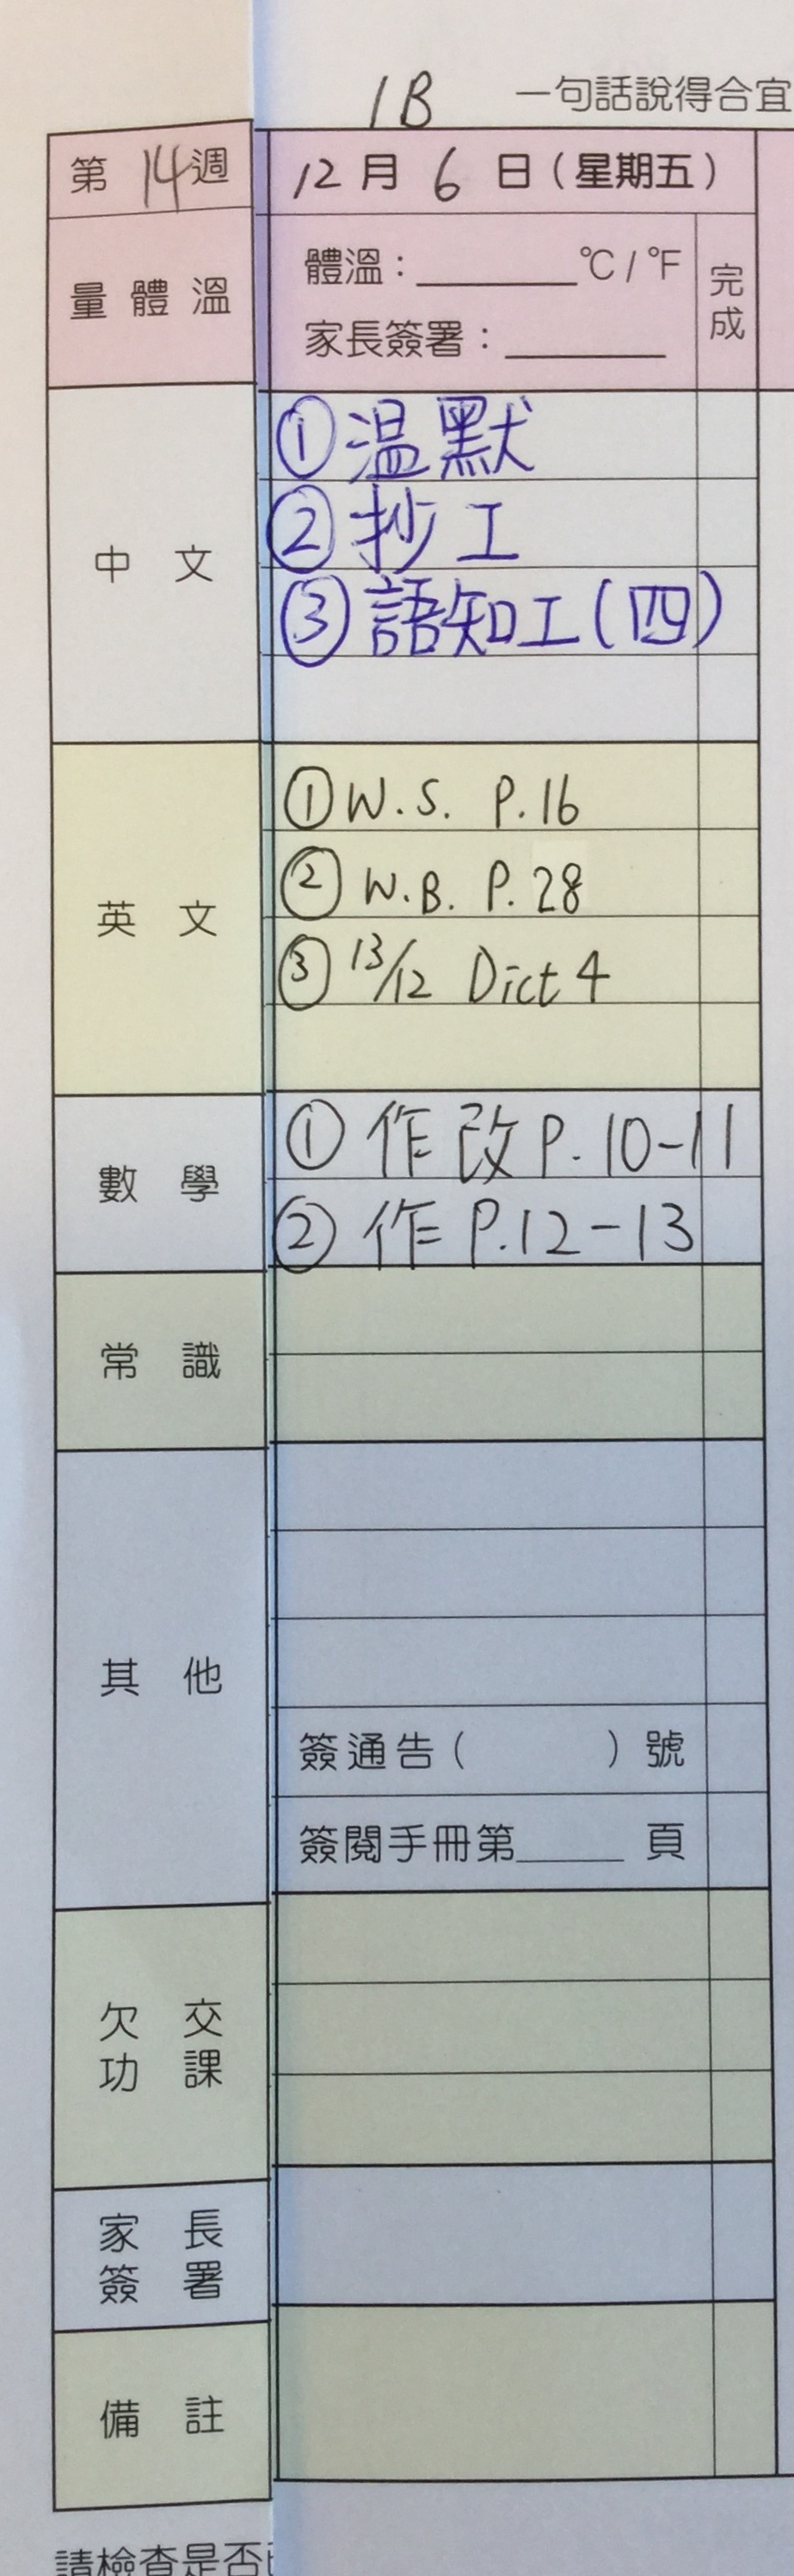 1B 一句話說得合宜
第 14 週 12 月 6 日(星期五)
量體溫 體溫:______°C / °F 完成
家長簽署:______
中文
①温默
②抄工
③語知工(四)
英文
①W.S. P.16
②W.B. P.28
③13/12 Dict 4
數學
①作改P.10-11
②作P.12-13
常識
其他
簽通告( )號
簽閱手冊第____頁
欠交功課
家長簽署
備註
請檢查是否